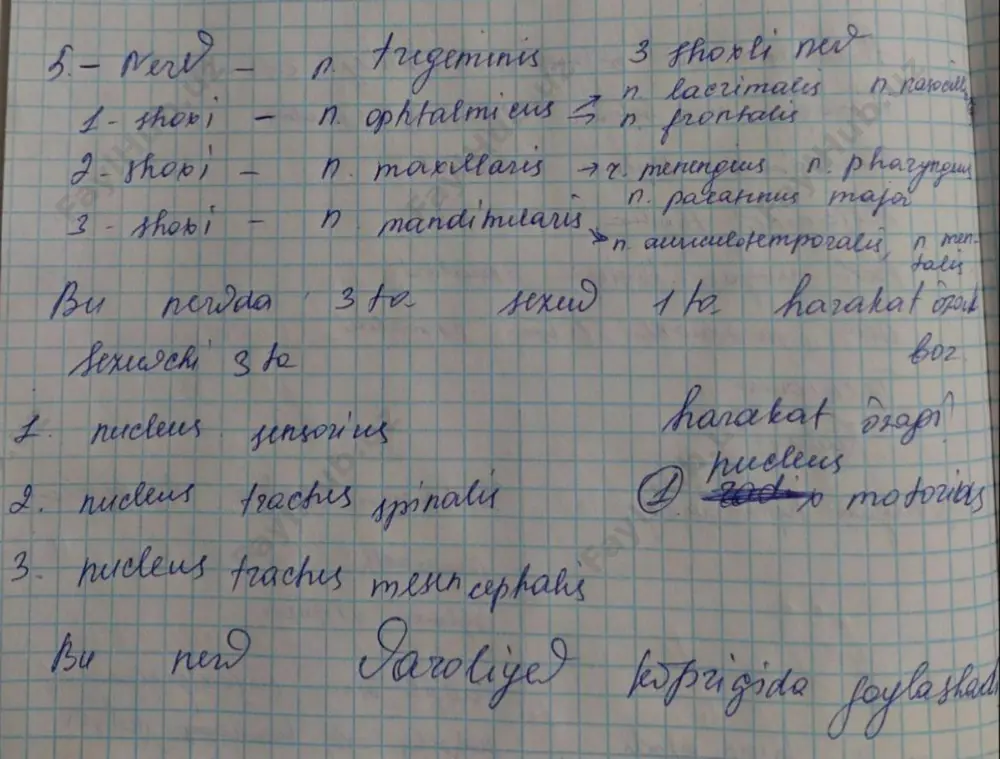 5.- Nerv - n. trigeminis 3 shoxli nerv
1- shoxi - n. ophtalmicus → n. lacrimalis n. nasocili
→ n. frontalis
2- shoxi - n. maxillaris → r. menengius n. pharyngius
n. palatinus major
3- shoxi - n. mandibularis
→ n. auriculotemporalis, n. men-
talis
Bu nervda 3 ta sezuv 1 ta harakat ôzak
bor.
Sezuvchi 3 ta
harakat ôzagi
1. nucleus sensorius
nucleus
2. nucleus tractus spinalis
① motorius
3. nucleus tractus mesencephalis
Bu nerv Varoliyev kôprigida joylashadi
FaylHub.uz